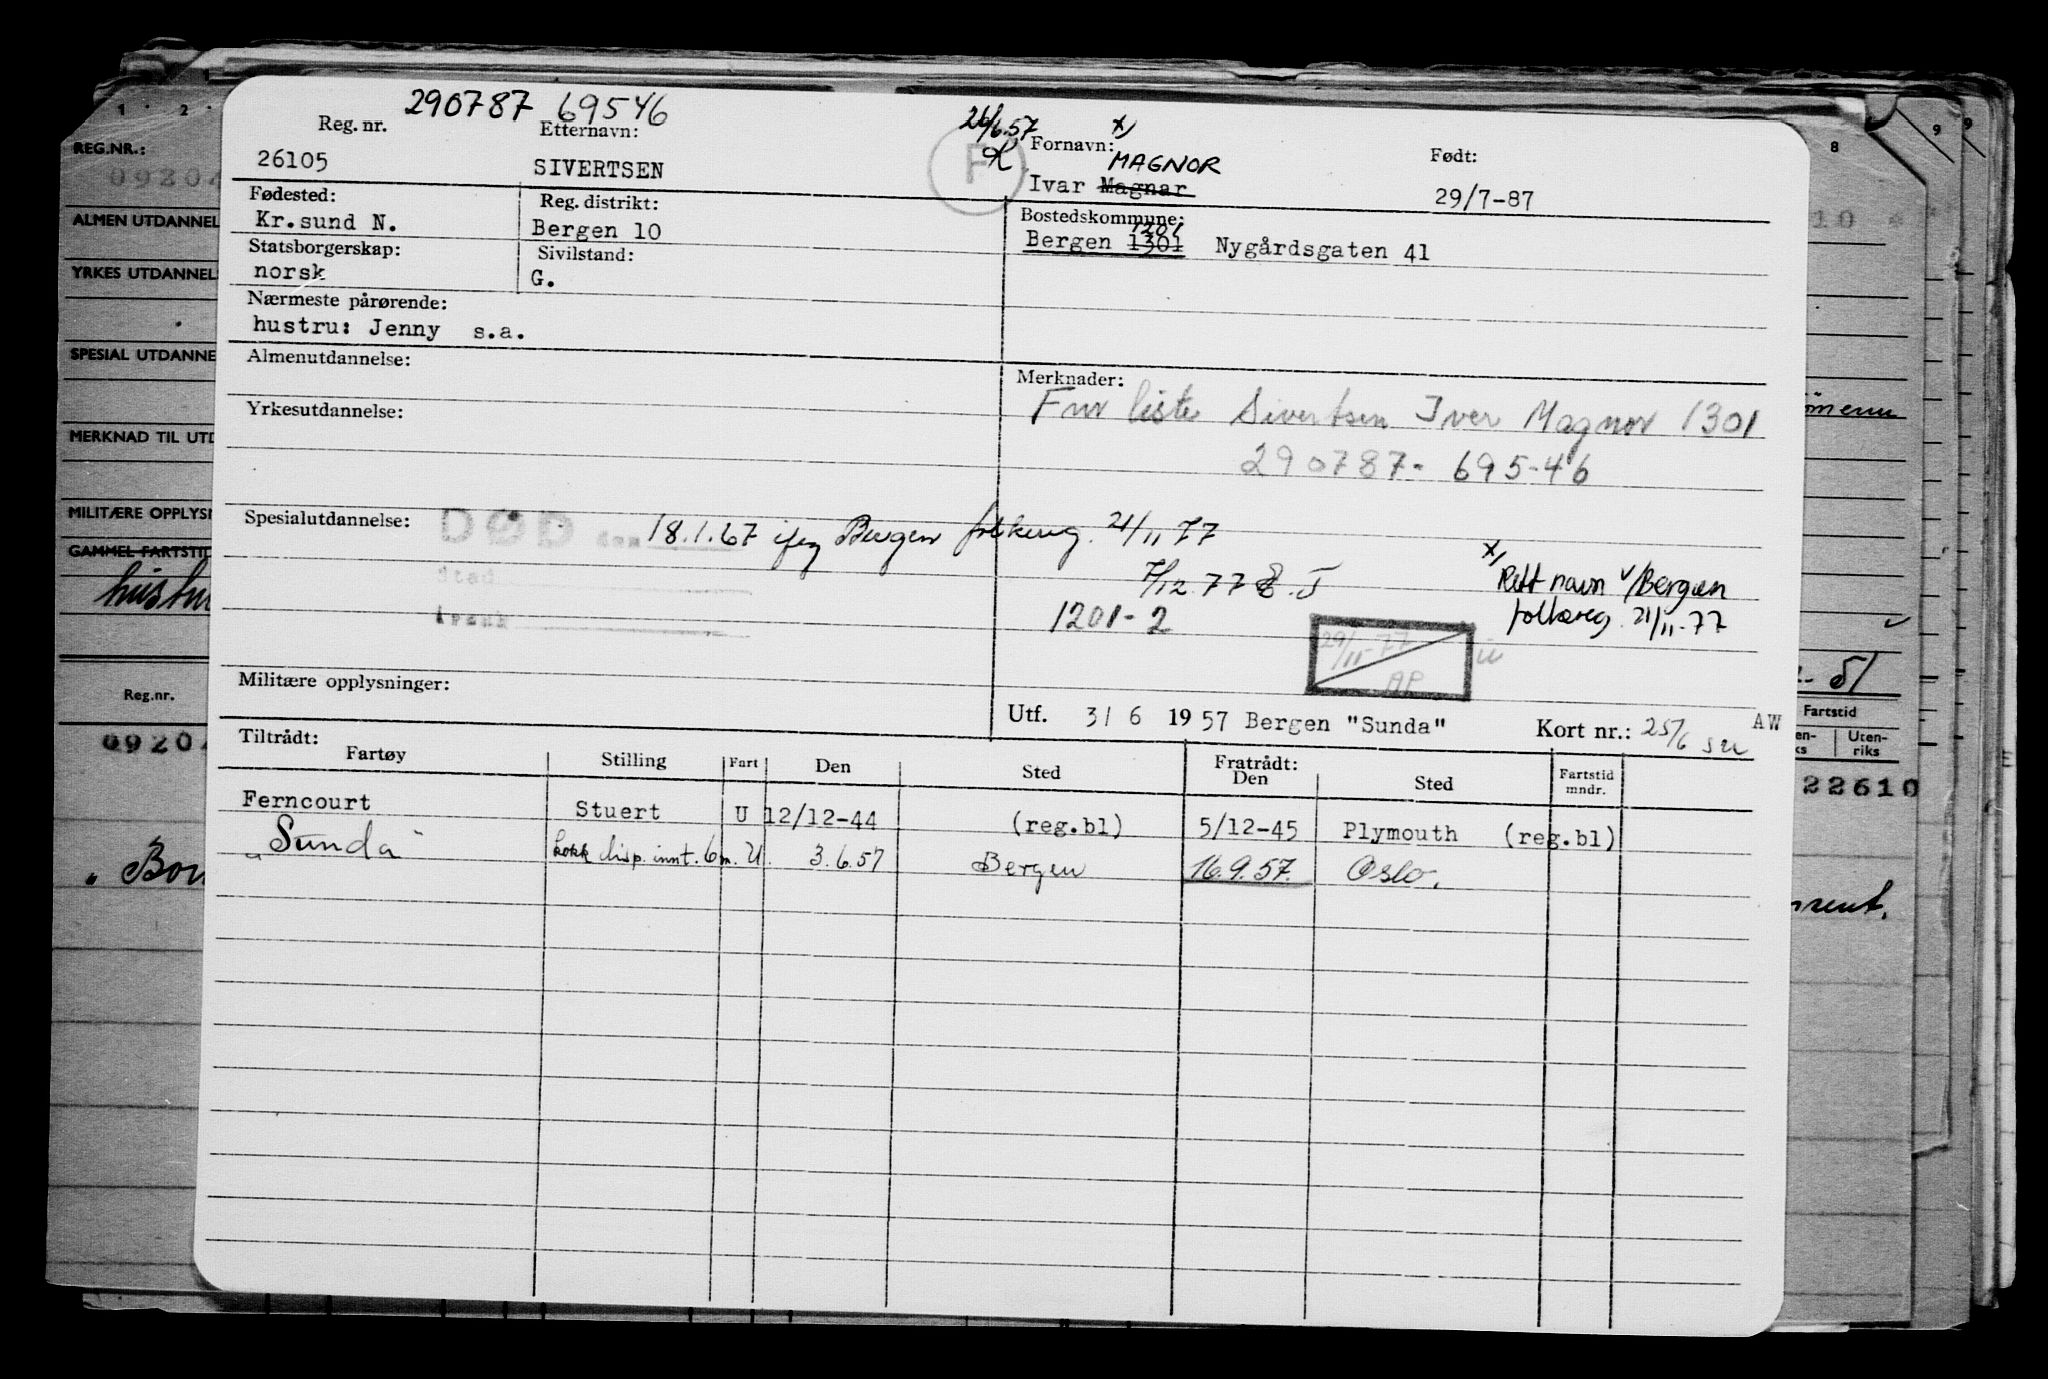 290787 69546
Reg. nr. Etternavn: 26/6.57 Fornavn: x) Født:
26105 SIVERTSEN F Ivar Magnar MAGNOR 29/7-87
Fødested: Reg. distrikt: Bostedskommune:
Kr.sund N. Bergen 10 Bergen 1301 1201 Nygårdsgaten 41
Statsborgerskap: Sivilstand:
norsk G.
Nærmeste pårørende:
hustru: Jenny s.a.
Almenutdannelse: Merknader:
Fnr liste Sivertsen Iver Magnor 1301
Yrkesutdannelse:
290787- 695-46
Spesialutdannelse: DØD den 18.1.67 iføg Bergen folkereg. 21/11 77
Sted
7/12 77
Årsak
1201-2
x) Rett navn v/Bergen
folkereg. 21/11-77
29/11-77
AP
Militære opplysninger:
Utf. 3/ 6 1957 Bergen "Sunda" Kort nr.: 25/6 AW
Tiltrådt: Fratrådt:
Fartøy Stilling Fart Den Sted Den Sted Fartstid mndr.
Ferncourt Stuert U 12/12-44 (reg.bl) 5/12-45 Plymouth (reg.bl)
"Sunda" kokk disp. innt. 6 m. U. 3.6.57 Bergen 16.9.57. Oslo.
1 2
REG.NR.:
09204
ALMEN UTDANNEL
YRKES UTDANNEL
SPESIAL UTDANNE
MERKNAD TIL UTD
MILITÆRE OPPLYSN
GAMMEL FARTSTID
Reg.nr.
09204
8 9 9
10
51
Fartstid
Uten-
riks
22610